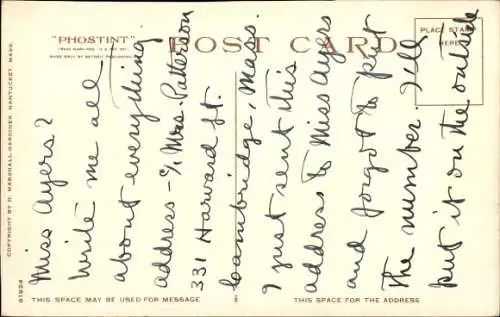 "PHOSTINT"
POST CARD
PLACE STAMP
HERE
MADE ONLY BY DETROIT PUBLISHING
COPYRIGHT BY H. MARSHALL GARDINER, NANTUCKET, MASS.
81924
THIS SPACE MAY BE USED FOR MESSAGE
THIS SPACE FOR THE ADDRESS
Miss Ayers?
Write me all
about everything
address - c/o Mrs. Patterson
331 Harvard St.
Cambridge, Mass.
I just sent this
address to Miss Ayers
and forgot to put
the number. I'll
put it on the outside